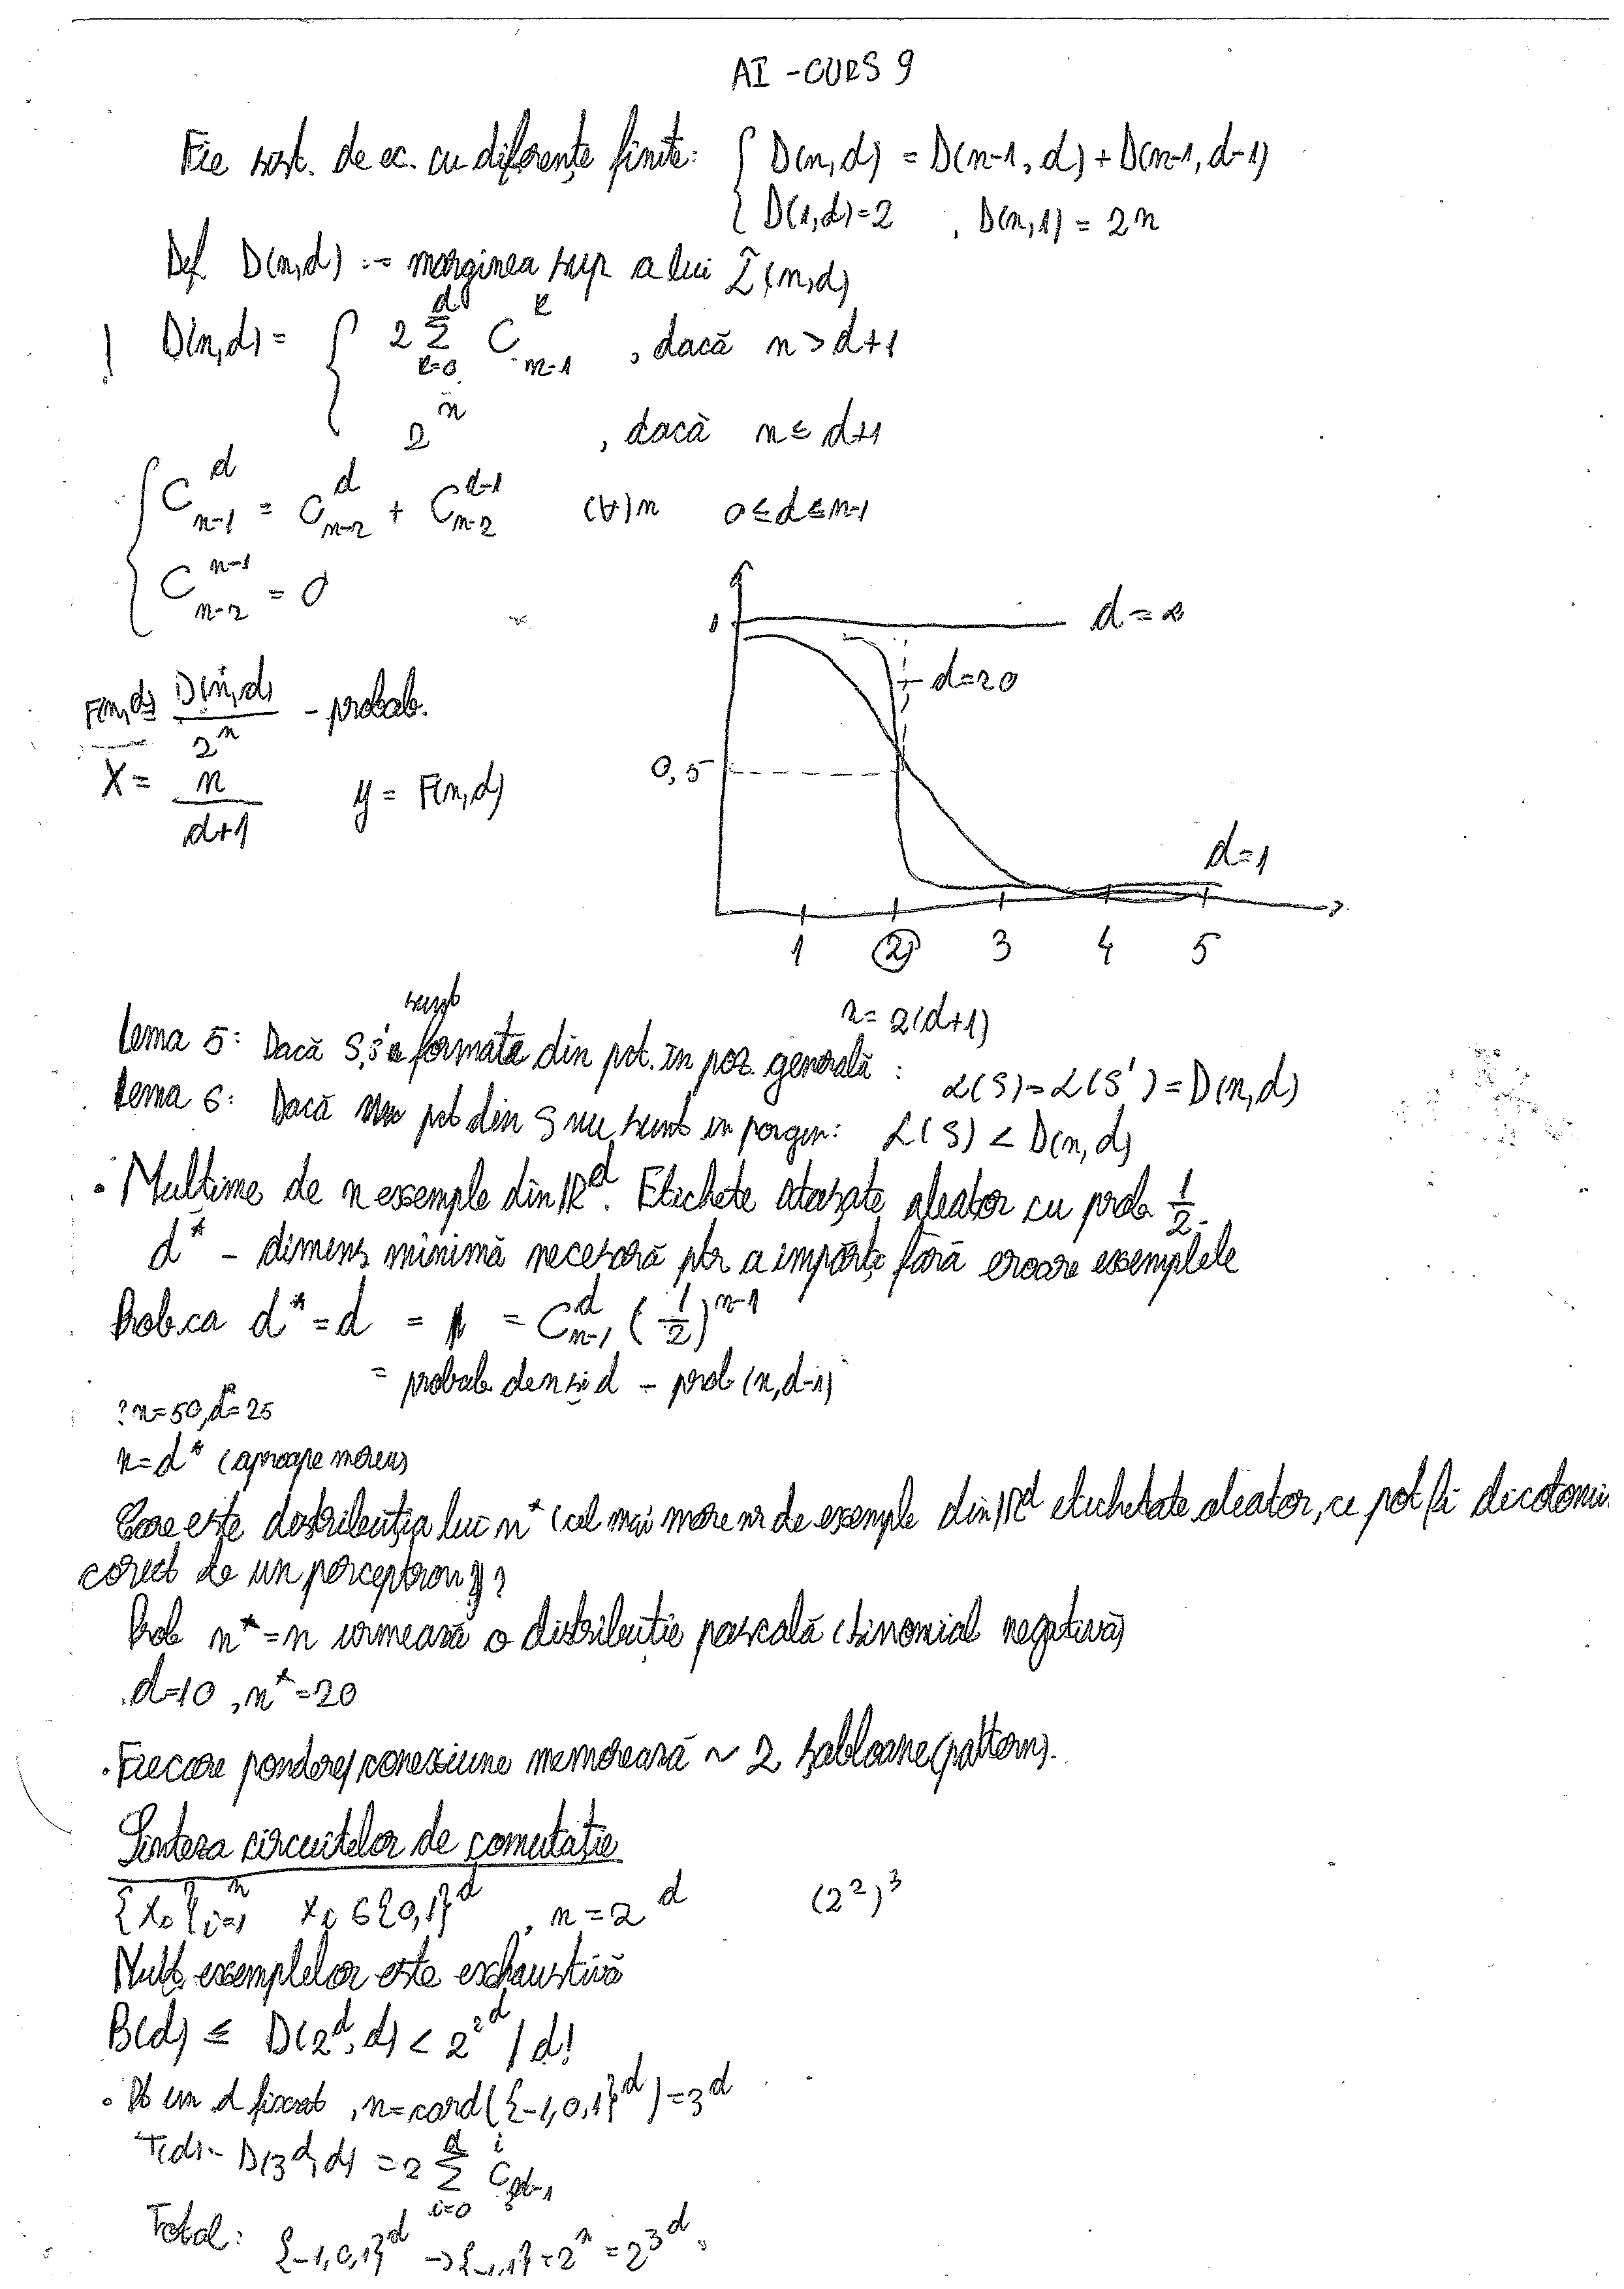 AI - CURS 9
Fie sist. de ec. cu diferențe finite: { D(n,d) = D(n-1, d) + D(n-1, d-1)
D(1,d)=2 , D(n,1) = 2n
Def D(n,d) := marginea sup a lui L(n,d)
! D(n,d) = { 2 Σ_{k=0}^{d} C_{n-1}^{k} , dacă n > d+1
2^n , dacă n ≤ d+1
{ C_{n-1}^{d} = C_{n-2}^{d} + C_{n-2}^{d-1} (∀) n 0 ≤ d ≤ n-1
C_{n-2}^{n-1} = 0
1 d = ∞
d=20
F(n,d) = D(n,d) / 2^n - probab.
0,5
X = n / d+1 y = F(n,d)
d=1
1 2 3 4 5
n = 2(d+1)
Lema 5: Dacă S,S' sunt formate din pct. în poz. generală : L(S) = L(S') = D(n,d)
Lema 6: Dacă pct din S nu sunt în poz gen: L(S) < D(n,d)
• Mulțime de n exemple din R^d. Etichete atașate aleator cu prob 1/2.
d* - dimens minimă necesară ptr a împărți fără eroare exemplele
Prob. ca d* = d = = C_{n-1}^{d} (1/2)^{n-1}
= probab de n și d - prob (n, d-1)
? n=50, d*=25
n=d* (aproape mereu)
Care este distribuția lui n* (cel mai mare nr de exemple din R^d etichetate aleator, ce pot fi
corect de un perceptron)?
Prob n* = n urmează o distribuție pascală (binomial negativă)
d=10 , n*=20
• Fiecare pondere/conexiune memorează ~ 2 șabloane (pattern).
Sinteza circuitelor de comutație
{Xi}_{i=1}^{n} Xi ∈ {0,1}^d , n = 2^d (2^2)^3
Mulț. exemplelor este exhaustivă
B(d) ≤ D(2^d, d) < 2^{2^d} / d!
• Pt un d fixat , n=card({-1,0,1}^d) = 3^d
T(d) - D(3^d, d) = 2 Σ_{i=0}^{d} C_{3^d-1}^{i}
Total: {-1,0,1}^d → {-1,1} = 2^n = 2^{3^d}.